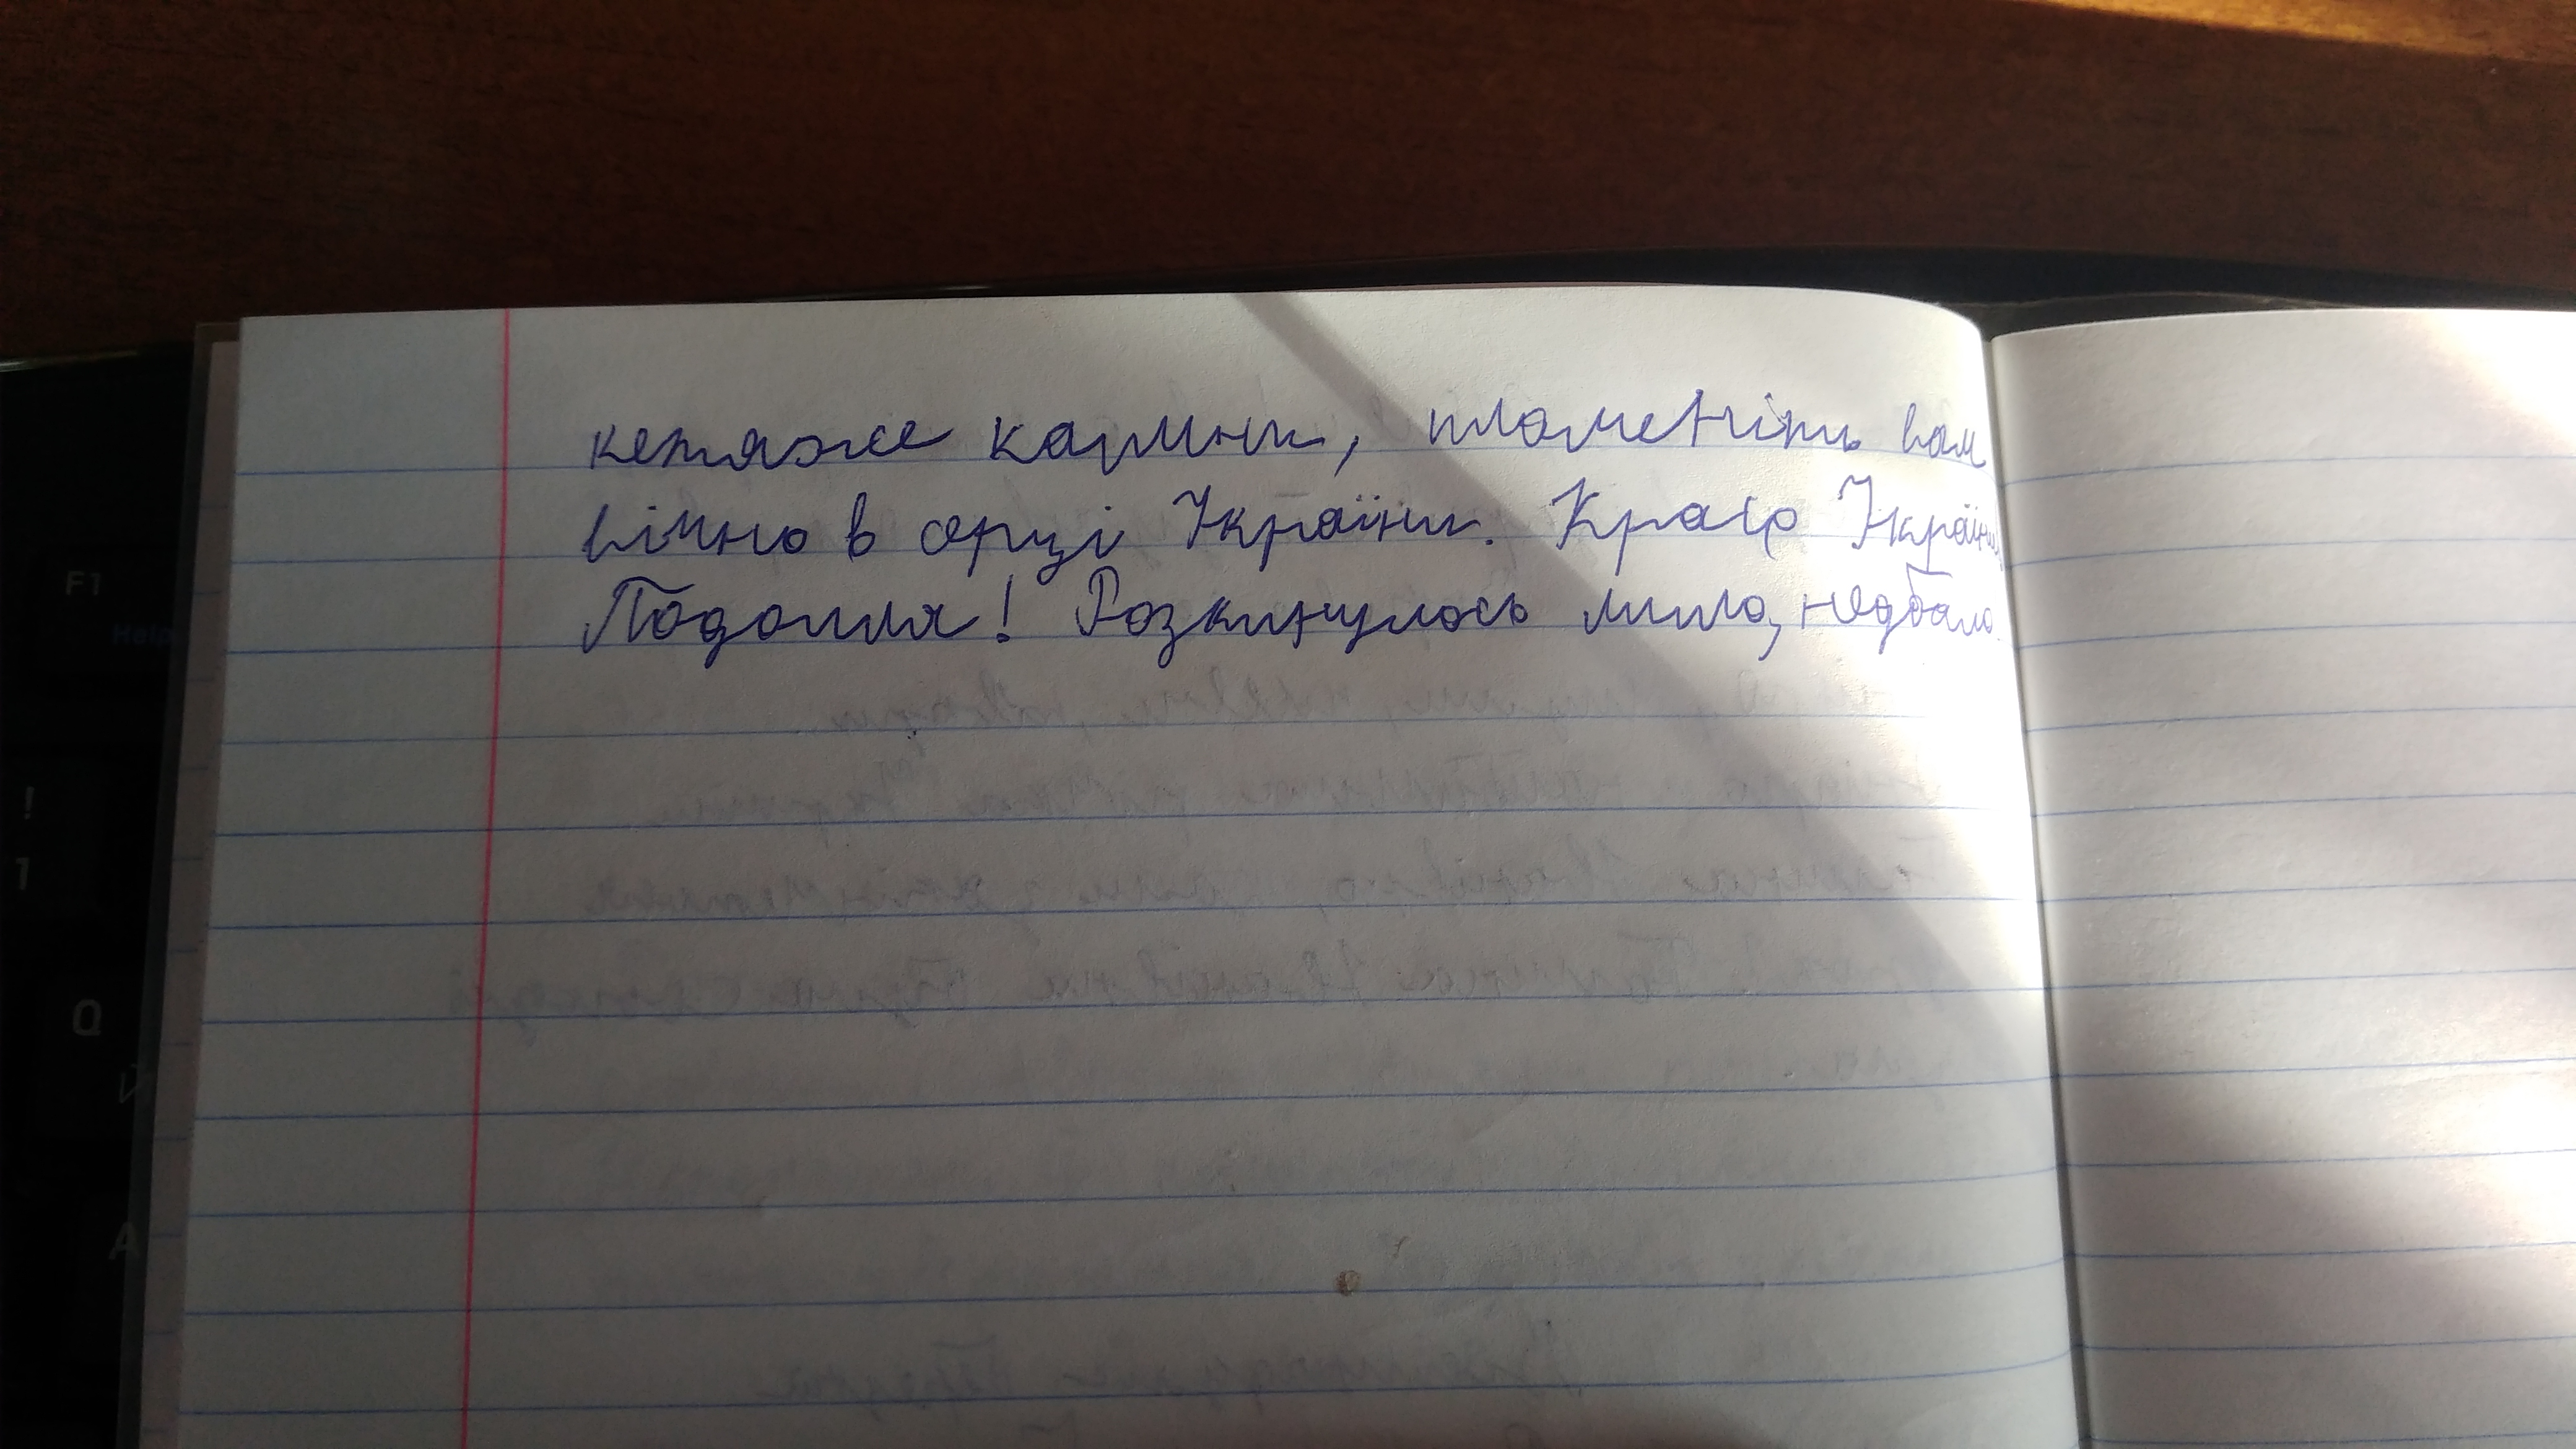 кетяже калини, пломеніть вам
вічно в серці України. Краса України
Подолля! Розкинулось мило, недбало
F1
Help
!
1
Q
Й
A